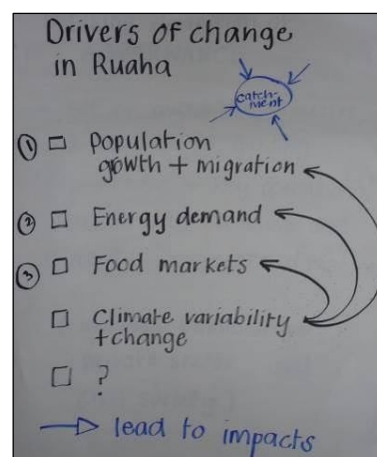 Drivers of change
in Ruaha
catch-
ment
① □ Population
growth + migration
② □ Energy demand
③ □ Food markets
□ Climate variability
+ change
□ ?
→ lead to impacts